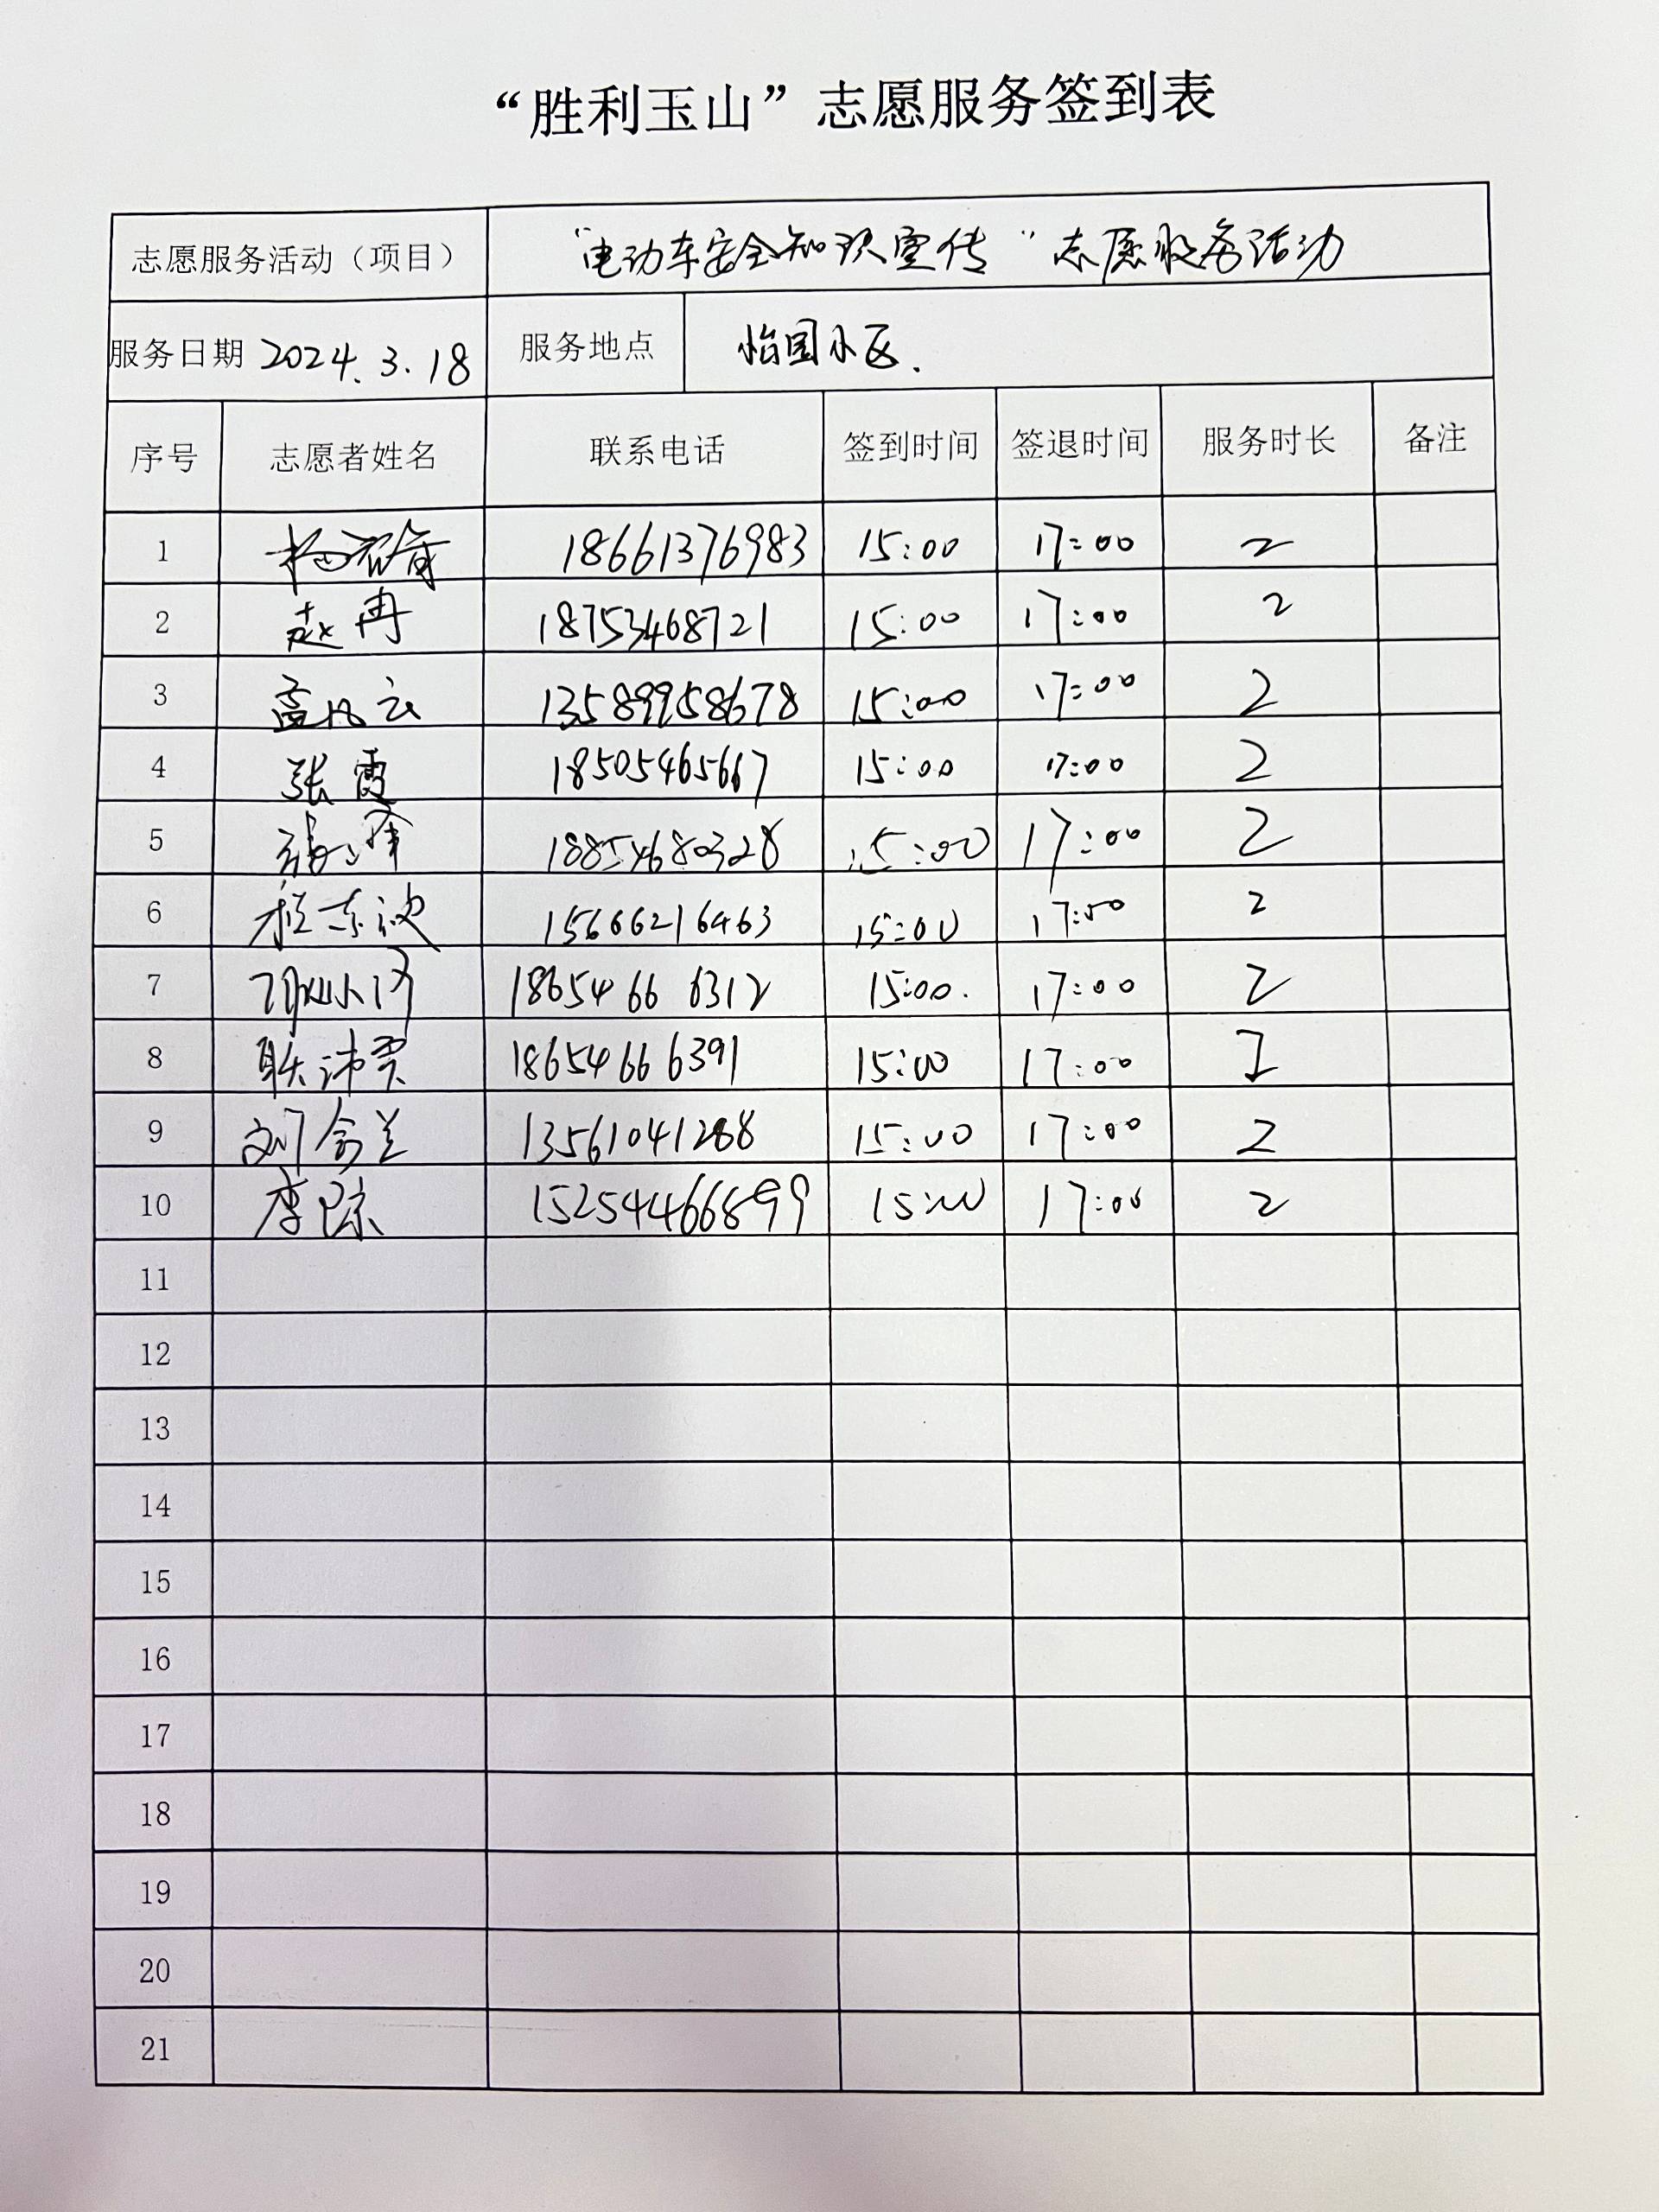 “胜利玉山”志愿服务签到表
志愿服务活动（项目） “电动车安全知识宣传”志愿服务活动
服务日期 2024.3.18 服务地点 怡园小区.
序号 志愿者姓名 联系电话 签到时间 签退时间 服务时长 备注
1 18661376983 15:00 17:00 2
2 赵冉 18753468721 15:00 17:00 2
3 13589958678 15:00 17:00 2
4 张霞 18505465667 15:00 17:00 2
5 18854680328 15:00 17:00 2
6 15666216463 15:00 17:00 2
7 18654666312 15:00. 17:00 2
8 18654666391 15:00 17:00 2
9 13561041288 15:00 17:00 2
10 15254466899 15:00 17:00 2
11
12
13
14
15
16
17
18
19
20
21